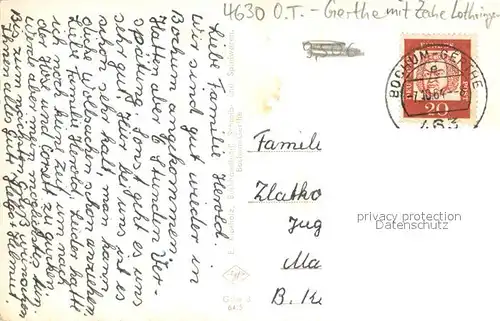 4630 O.T. - Gerthe mit Zeche Lothringen
Liebe Familie Herold.
Wir sind gut wieder in
Bochum angekommen
Hatten aber 2 Stunden Ver-
spätung. Sonst geht es uns
sehr gut. Hier bei uns ist es
schon sehr kalt man kann
die Wollsachen schon anziehen.
Liebe Familie Herold. Leider hatte
ich noch keine Zeit, um nach
der Hose und Corselt zu gucken.
Werde aber mein möglichstes tun.
Bis zum nächsten Gruß wünschen
Ihnen alles Gute
BOCHUM-GERTHE
a
-7.10.64-
463
20
Familie
Zlatko
Jug
Ma
B. K
privacy protection
Datenschutz
Agfa